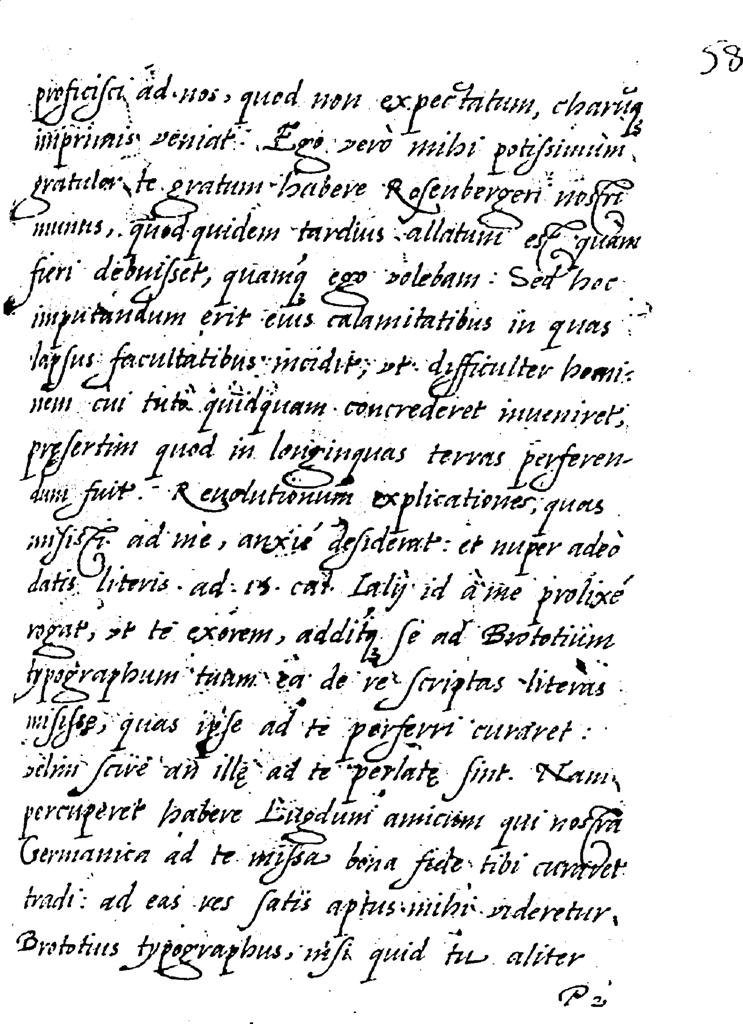 58
proficisci ad nos, quod non expectatum, charumq;
inprimis veniat. Ego verò mihi potissimùm
gratulor te gratum habere Rosenbergeri nostri
munus, quod quidem tardius allatum est quàm
fieri debuisset, quamq; ego volebam: Sed hoc
imputandum erit eius calamitatibus in quas
lapsus facultatibus incidit; vt difficulter homi-
nem cui tutò quidquam concrederet inueniret,
pręsertim quod in longinquas terras perferen-
dum fuit. Reuolutionum explicationes, quas
misisti ad me, anxiè desiderat: et nuper adeò
datis literis ad 15 cal. Ialij id à me prolixè
rogat, vt te exorem, additq; se ad Brototium
typographum tuum ea de re scriptas literas
misisse, quas ipse ad te perferri curaret:
velim scire an illę ad te perlatę sint. Nam
percuperet habere Lugduni amicum qui nostra
Germanica ad te missa bona fide tibi curaret
tradi: ad eas res satis aptus mihi videretur
Brototius typographus, nisi quid tu aliter
P 2